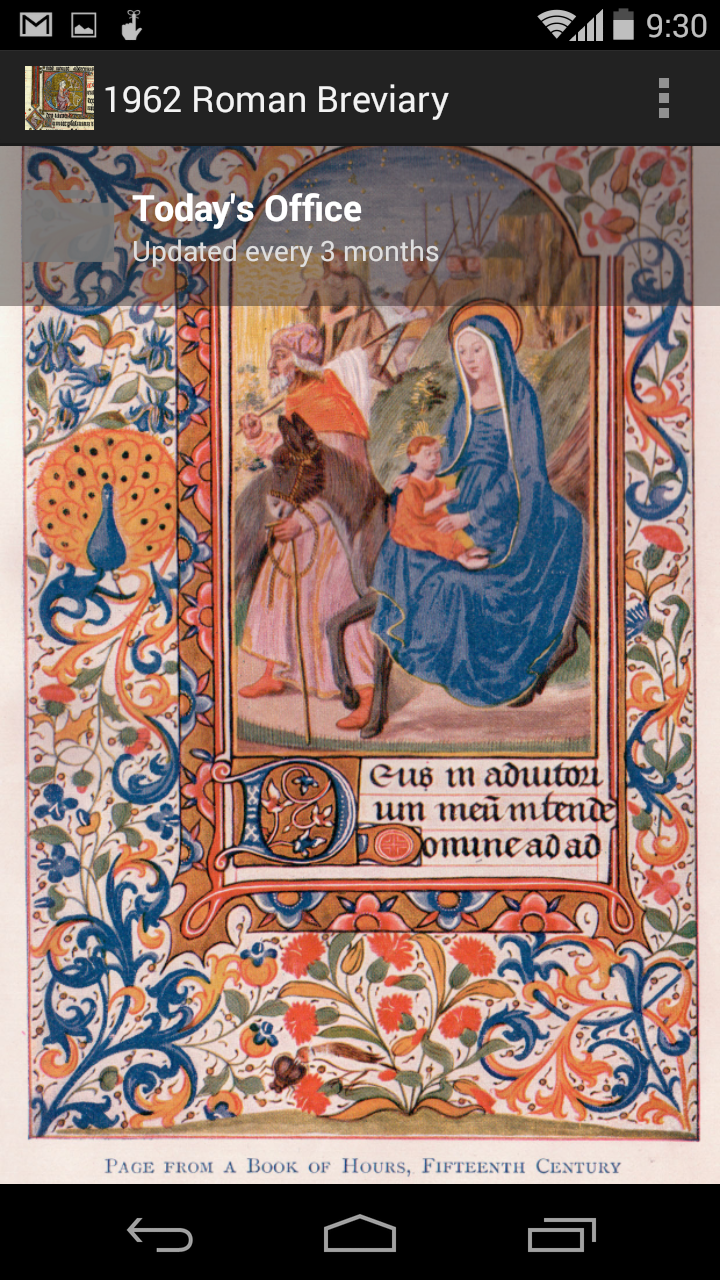 9:30
1962 Roman Breviary
Today's Office
Updated every 3 months
Deus in adiutori
um meū intende
Domine ad ad
PAGE FROM A BOOK OF HOURS, FIFTEENTH CENTURY